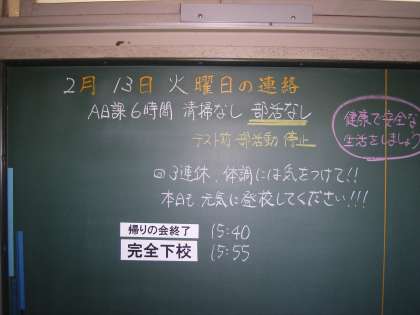 2月 13日 火曜日の連絡
A日課6時間 清掃なし 部活なし
テスト前 部活動 停止
健康で安全な
生活をしましょう
◎3連休、体調には気をつけて!!
本日も、元気に登校してください!!!
帰りの会終了 15:40
完全下校 15:55